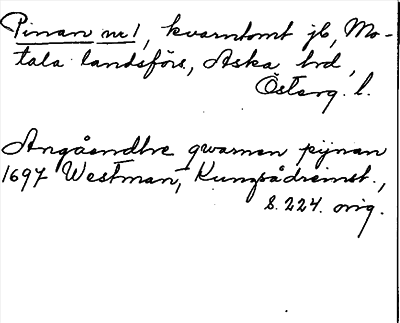 Pinan nr 1, kvarntomt jb, Mo-
tala landsförs., Aska hd,
Österg. l.
Angåendhe qwarnen pijnan
1697 Westman, Kungsådreinst.,
s. 224. orig.